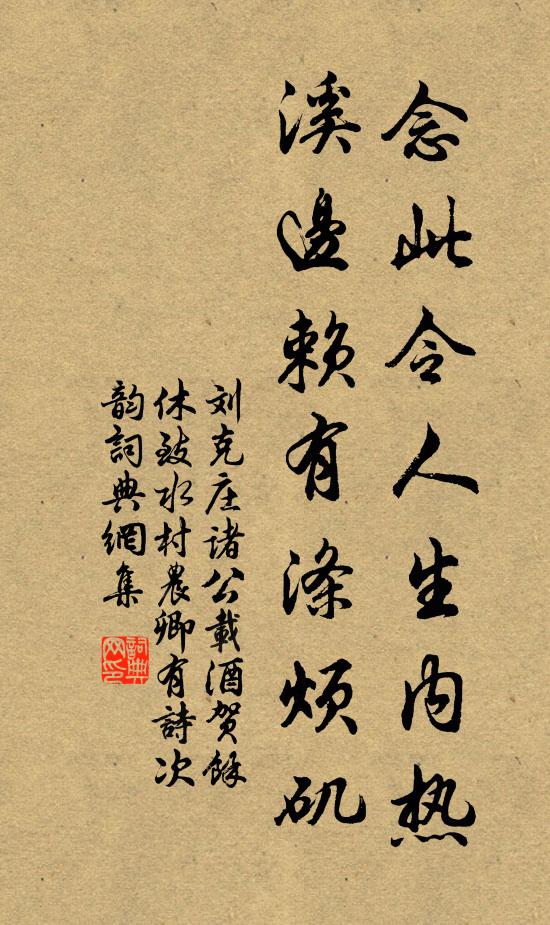 念此令人生内热
溪邊赖有涤烦矶
刘克庄诸公載酒贺餘
休致水村農卿有詩次
韵詞典網集
詞典
网印